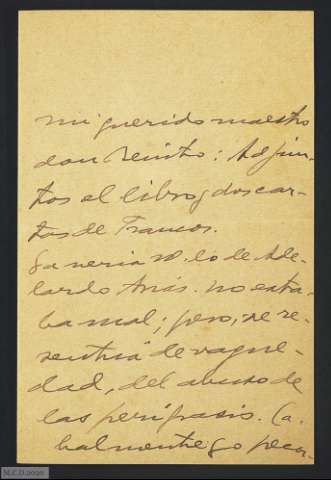 mi querido maestro
don Benito: Adjun-
tos el libro y dos car-
tas de Francos.
Ya vería V. lo de Ade-
lardo Arias. no esta-
ba mal; pero, se re-
sentía de vague-
dad, del abuso de
las perífrasis. Ca-
balmente yo peca-
M.C.D 2020